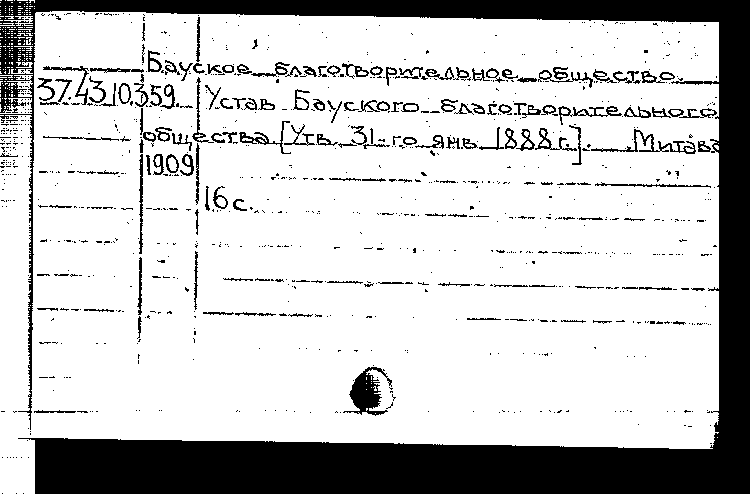 Бауское благотворительное общество.
37.43.10.359. Устав Бауского благотворительного
общества [Утв. 31-го янв. 1888 г.]. Митава
1909
16 с.